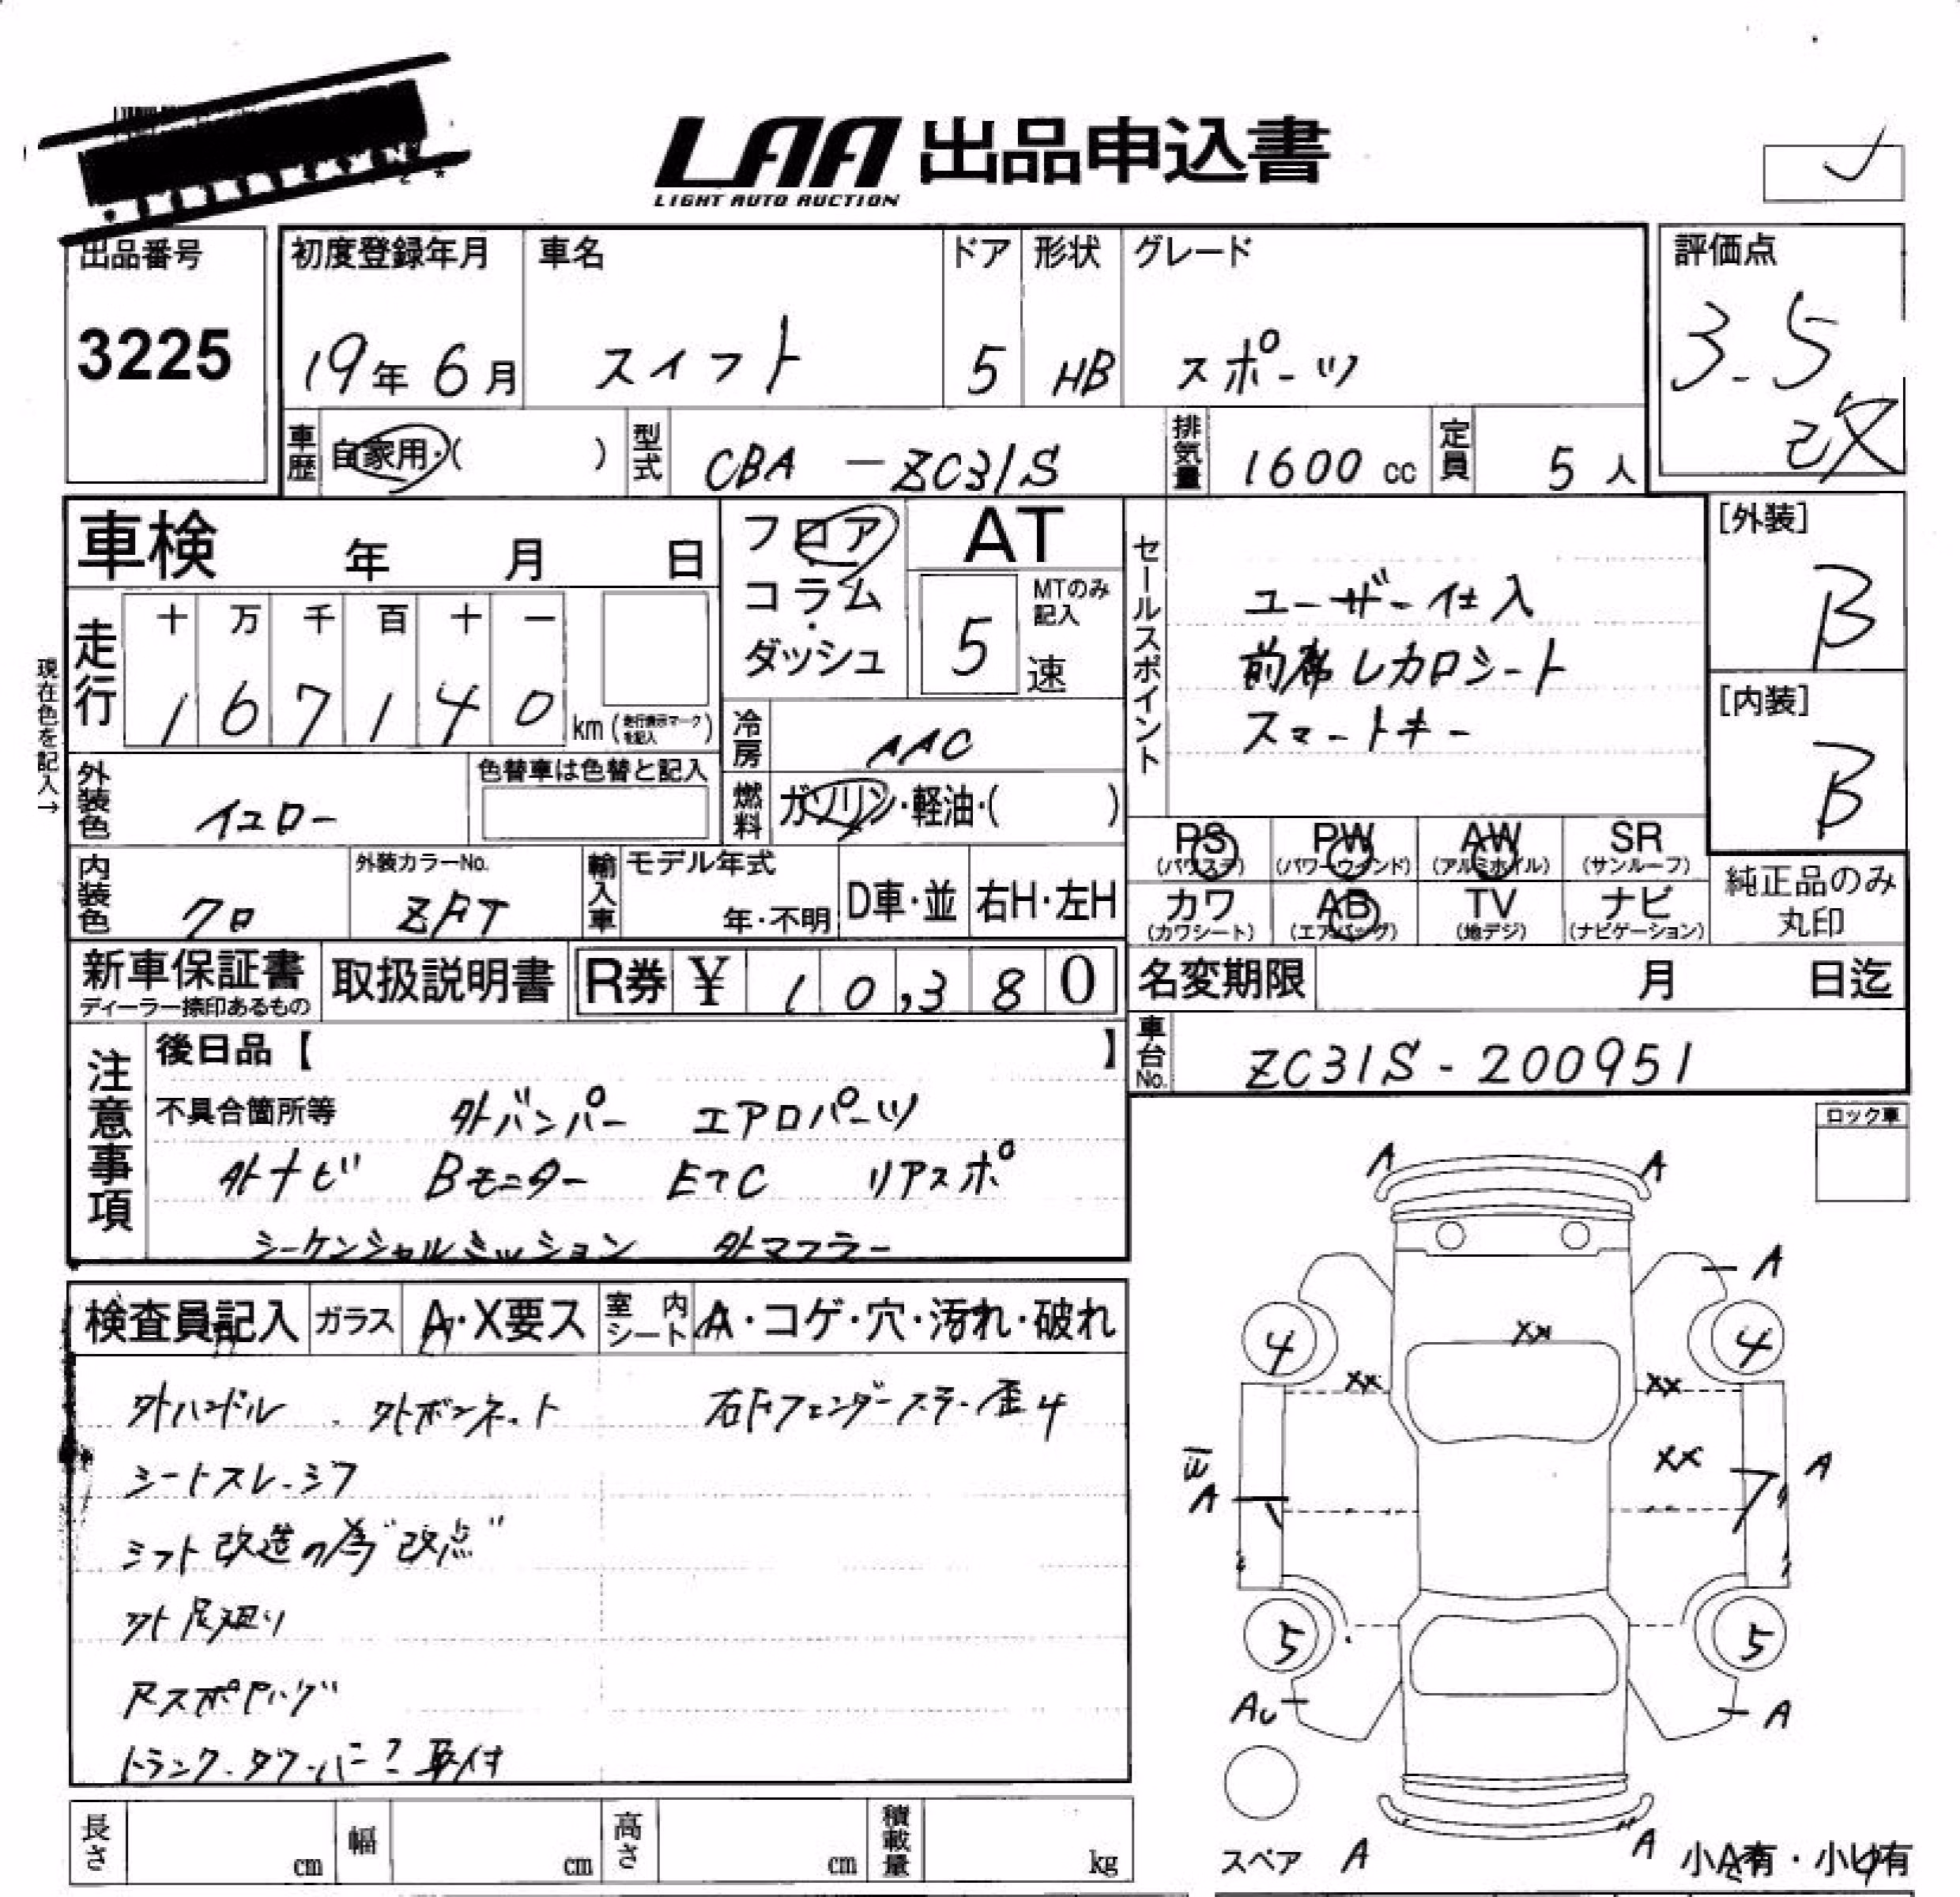 LAA 出品申込書
LIGHT AUTO AUCTION
出品番号 初度登録年月 車名 ドア 形状 グレード 評価点
3225 19年 6月 スイフト 5 HB スポーツ 3.5
改
車歴 自家用・( ) 型式 CBA - ZC31S 排気量 1600 cc 定員 5 人
車検 年 月 日 フロア AT セールスポイント [外装]
コラム 5 MTのみ記入 ユーザー仕入 B
ダッシュ 速 前席レカロシート
スマートキー
走行 十 万 千 百 十 一
1 6 7 1 4 0 km (走行表示マークを記入)
現在色を記入→
冷房 AAC [内装]
B
外装色 イエロー 色替車は色替と記入 燃料 ガソリン・軽油・( )
PS (パワステ) PW (パワーウインド) AW (アルミホイル) SR (サンルーフ)
カワ (カワシート) AB (エアバッグ) TV (地デジ) ナビ (ナビゲーション)
純正品のみ
丸印
内装色 クロ 外装カラーNo. ZFT 輸入車 モデル年式 年・不明 D車・並 右H・左H
新車保証書 取扱説明書 R券 ¥ 10,380 名変期限 月 日迄
ディーラー捺印あるもの
車台No. ZC31S - 200951
注意事項 後日品【 】
不具合箇所等 外バンパー エアロパーツ
外ナビ Bモニター ETC リアスポ
シーケンシャルミッション 外マフラー
ロック車
検査員記入 ガラス A・X要ス 室内シート A・コゲ・穴・汚れ・破れ
外ハンドル 外ボンネット
シートスレ・シワ
シフト改造の為"改点"
外足廻り
トランク
取付
A A
A
XX
4 4
XX XX
XX
A A
5 5
A
A A
スペア 小A有・小U有
長さ cm 幅 cm 高さ cm 積載量 kg